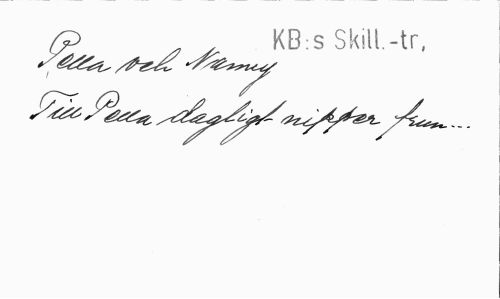 KB:s Skill.-tr,
Pella och Nanny
Till Pella dagligt nipper frun...